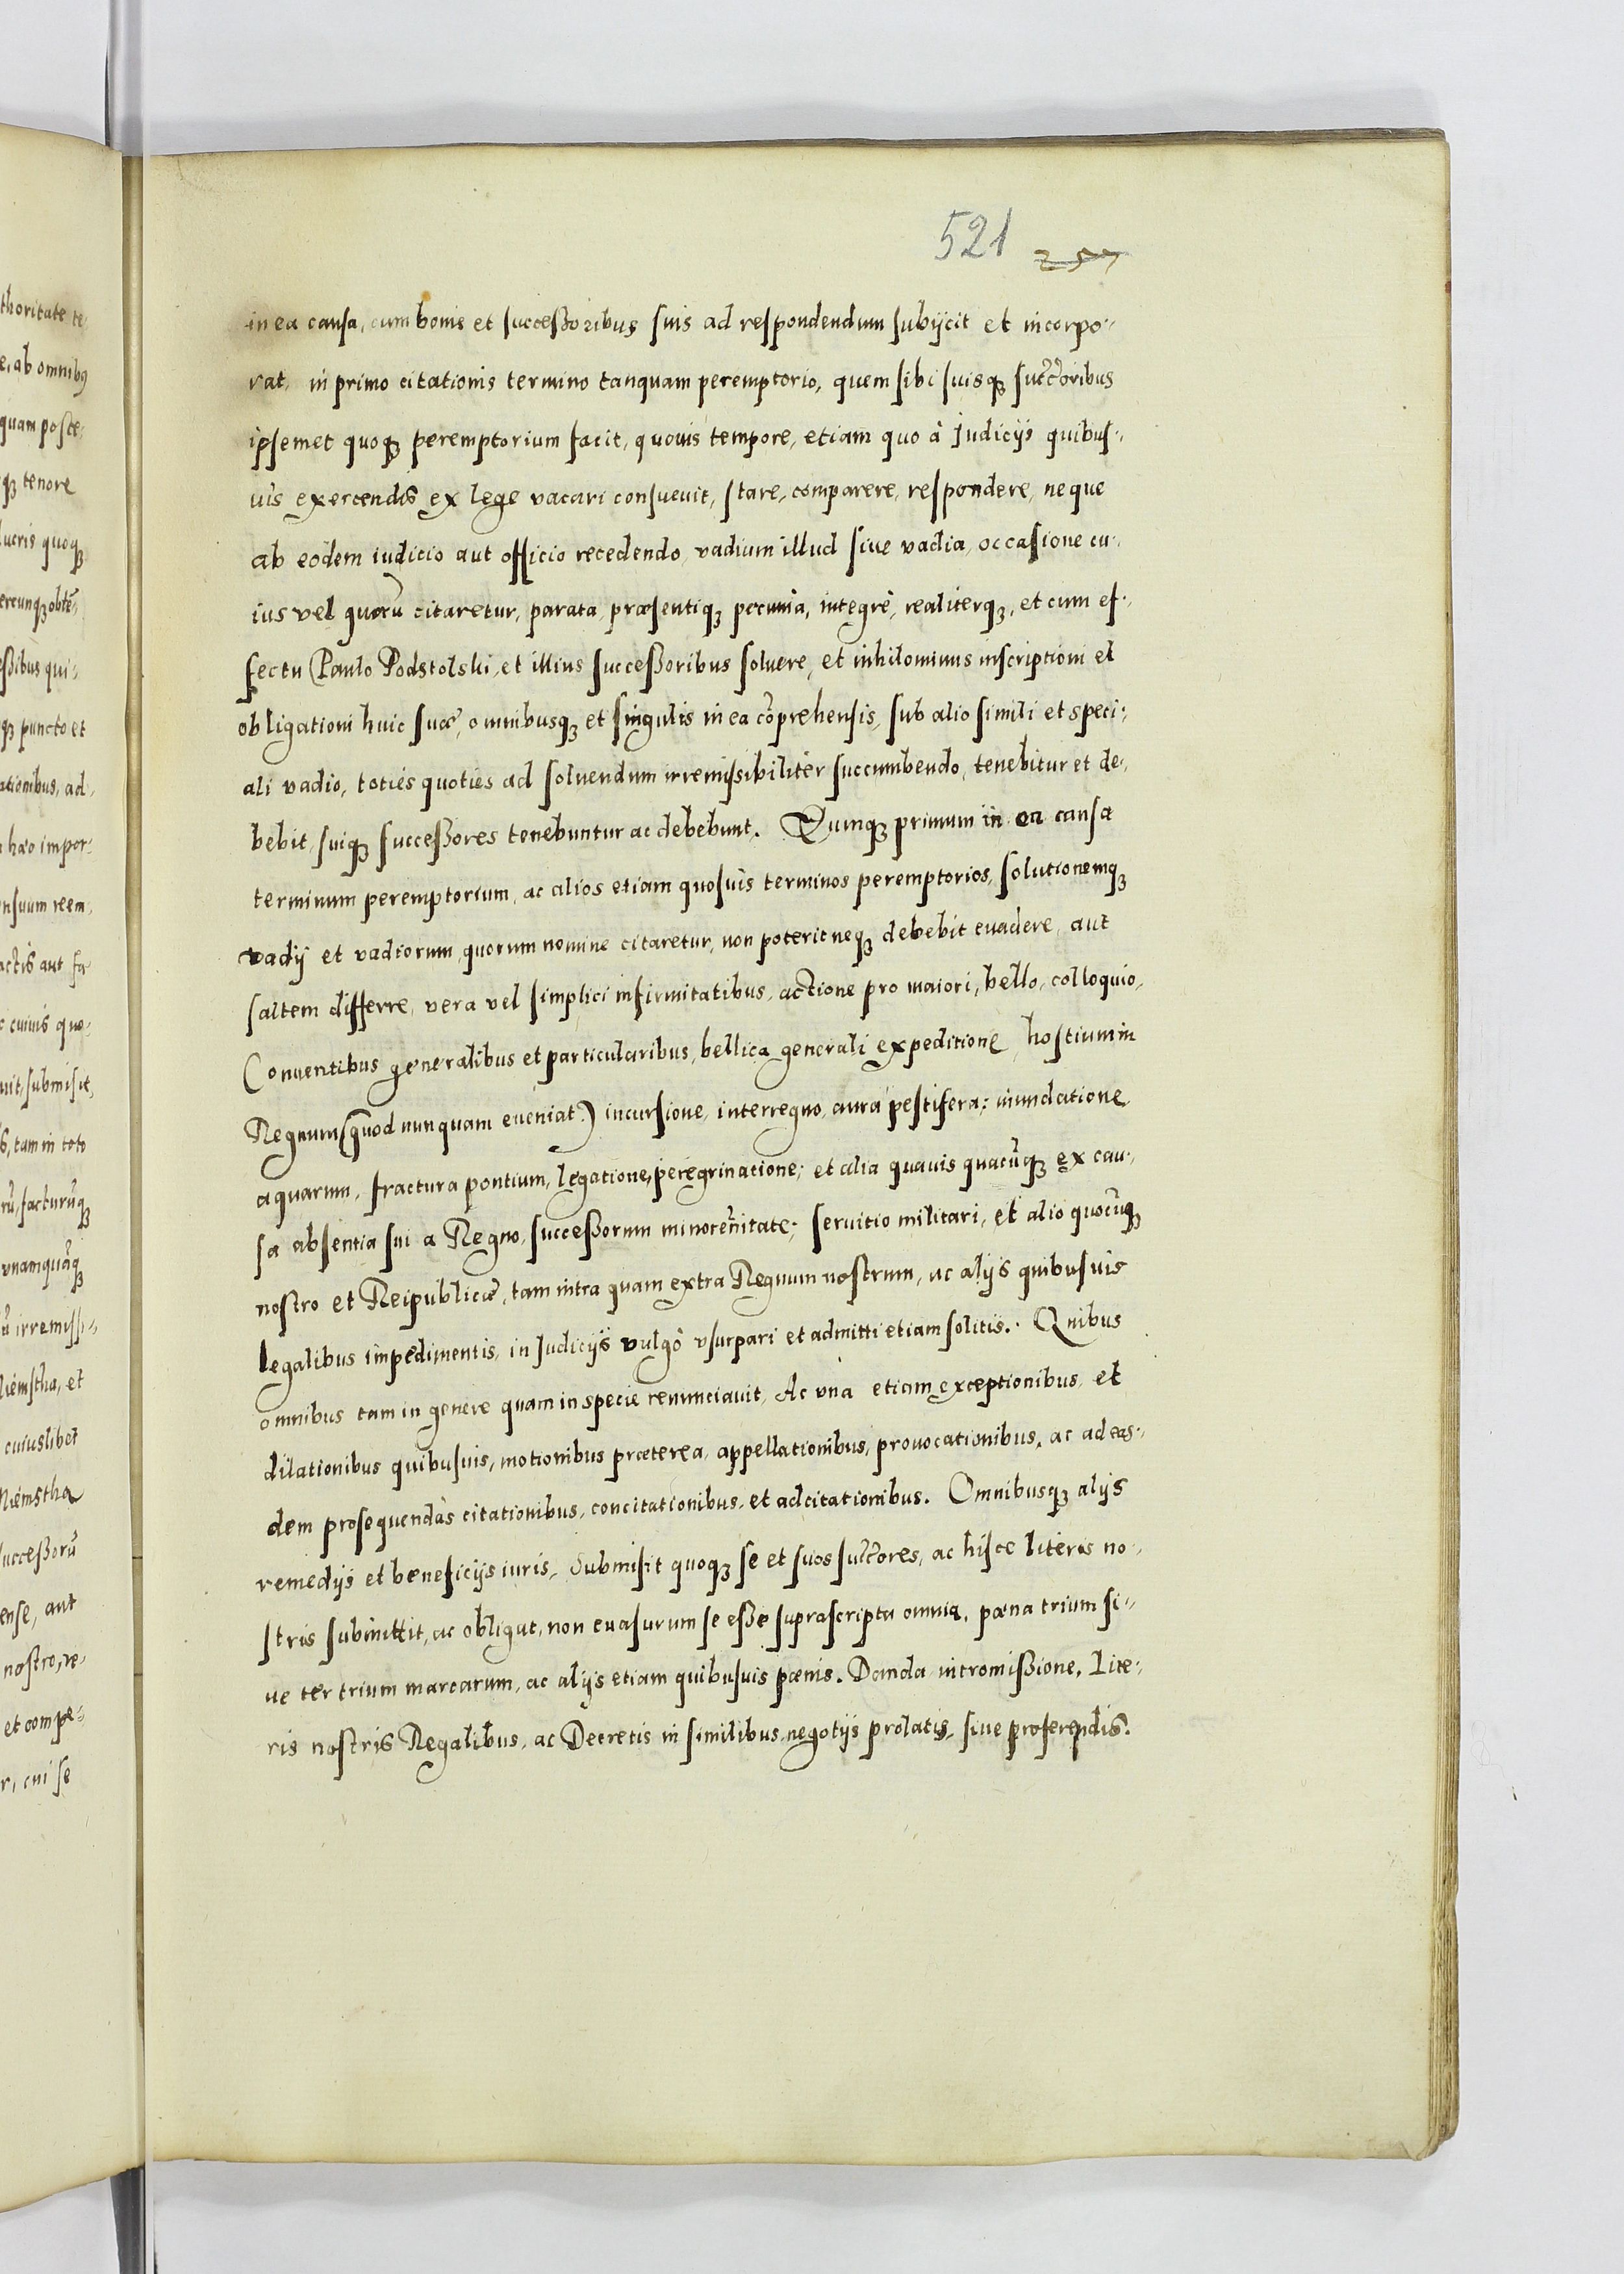 521 257
in ea causa, cum bonis et successoribus suis ad respondendum subijcit et incorpo-
rat, in primo citationis termino tanquam peremptorio, quem sibi suisq; succ̃oribus
ipsemet quoq; peremptorium facit, quouis tempore, etiam quo à Judicijs quibus-
uis exercendis ex lege vacari consueuit, stare, comparere, respondere, neque
ab eodem iudicio aut officio recedendo, vadium illud siue vadia, occasione cu-
ius vel quorũ citaretur, parata, præsentiq; pecunia, integrè, realiterq;, et cum ef-
fectu Paulo Podstolski, et illius successoribus soluere, et nihilominus inscriptioni et
obligationi huic suæ, omnibusq; et singulis in ea cõprehensis, sub alio simili et speci-
ali vadio, toties quoties ad soluendum irremissibiliter succumbendo, tenebitur et de-
bebit, suiq; successores tenebuntur ac debebunt. Qumq; primum in ea causa
terminum peremptorium, ac alios etiam quosuis terminos peremptorios, solutionemq;
vadij et vadiorum, quorum nomine citaretur, non poterit neq; debebit euadere, aut
saltem differre, vera vel simplici infirmitatibus, actione pro maiori, bello, colloquio,
Conuentibus generalibus et particularibus, bellica generali expeditione, hostium in
Regnum (quod nunquam eueniat) incursione, interregno, aura pestifera; inundatione
aquarum, fractura pontium, legatione, peregrinatione; et alia quauis quacũq; ex cau-
sa absentia sui a Regno, successorum minorẽnitate; seruitio militari, et alio quocũq;
nostro et Reipublicæ, tam intra quam extra Regnum nostrum, ac alijs quibusuis
legalibus impedimentis, in Judicijs vulgò vsurpari et admitti etiam solitis. Quibus
omnibus tam in genere quam in specie renunciauit, Ac vnà etiam exceptionibus, et
dilationibus quibusuis, motionibus præterea, appellationibus, prouocationibus, ac ad eas-
dem prosequendas citationibus, concitationibus, et adcitationibus. Omnibusq; alijs
remedijs et beneficijs iuris, Submisit quoq; se et suos succ̃ores, ac hisce literis no-
stris submittit, ac obligat, non euasurum se esse suprascripta omnia, pœna trium si-
ue ter trium marcarum, ac alijs etiam quibusuis pœnis. Danda intromissione. Lite-
ris nostris Regalibus, ac Decretis in similibus negotijs prolatis, siue proferendis.